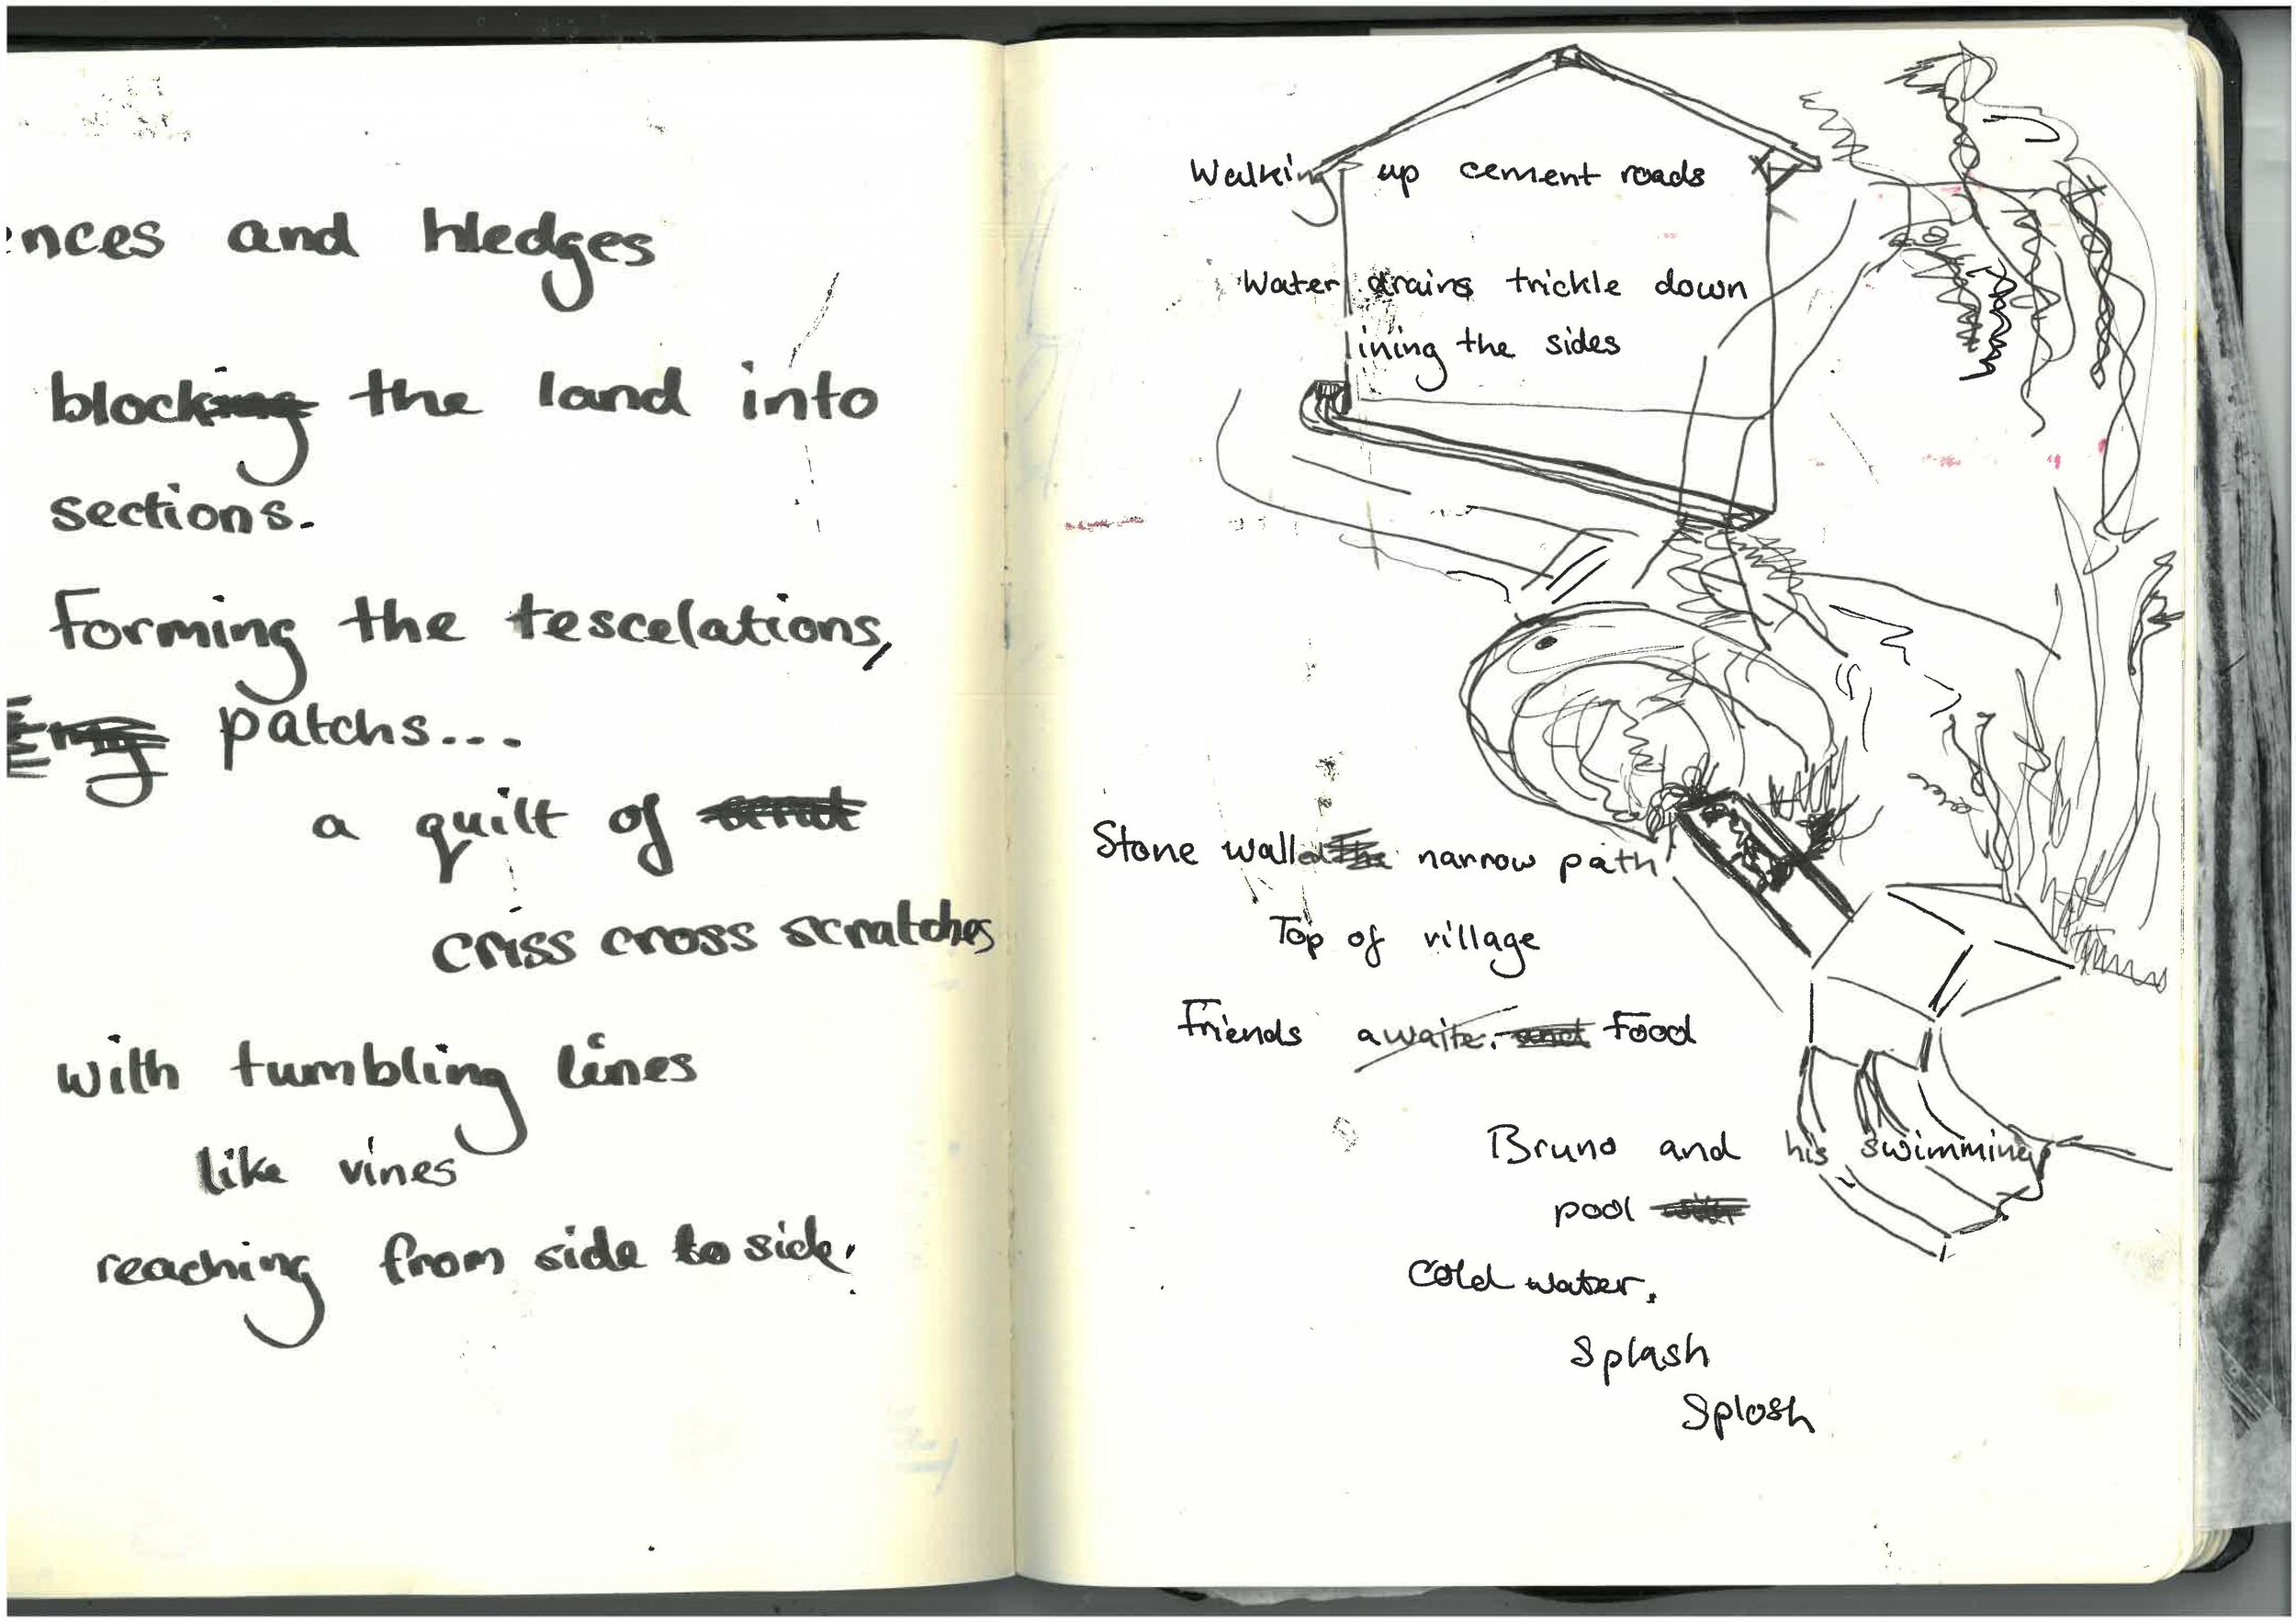 ences and hledges
block the land into
sections.
forming the tescelations,
patchs...
a quilt of
criss cross scratches
with tumbling lines
like vines
reaching from side to side.
Walking up cement roads
Water drains trickle down
lining the sides
Stone walled narrow path
Top of village
Friends awaite. Food
Bruno and his swimming
pool
Cold water.
Splash
Splosh